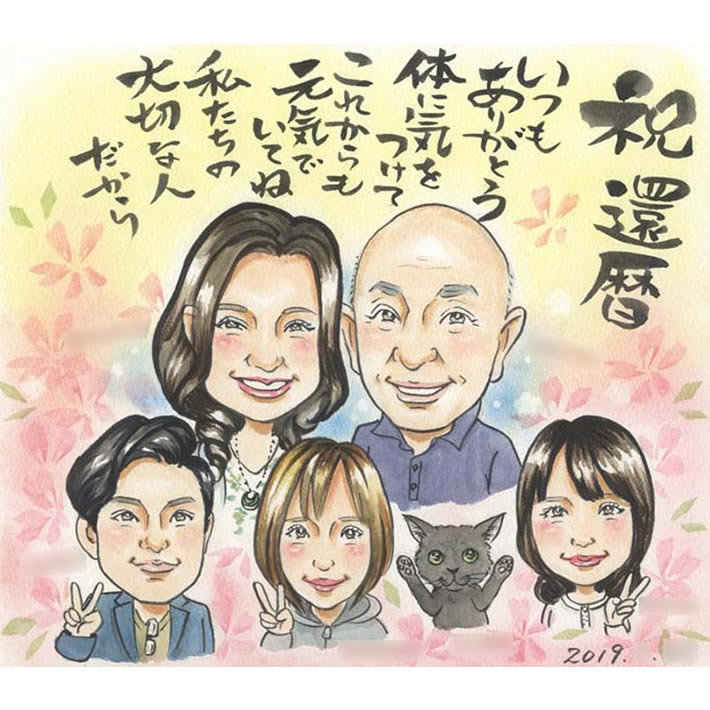 祝還暦
いつも
ありがとう
体に気を
つけて
これからも
元気で
いてね
私たちの
大切な人
だから
2019.